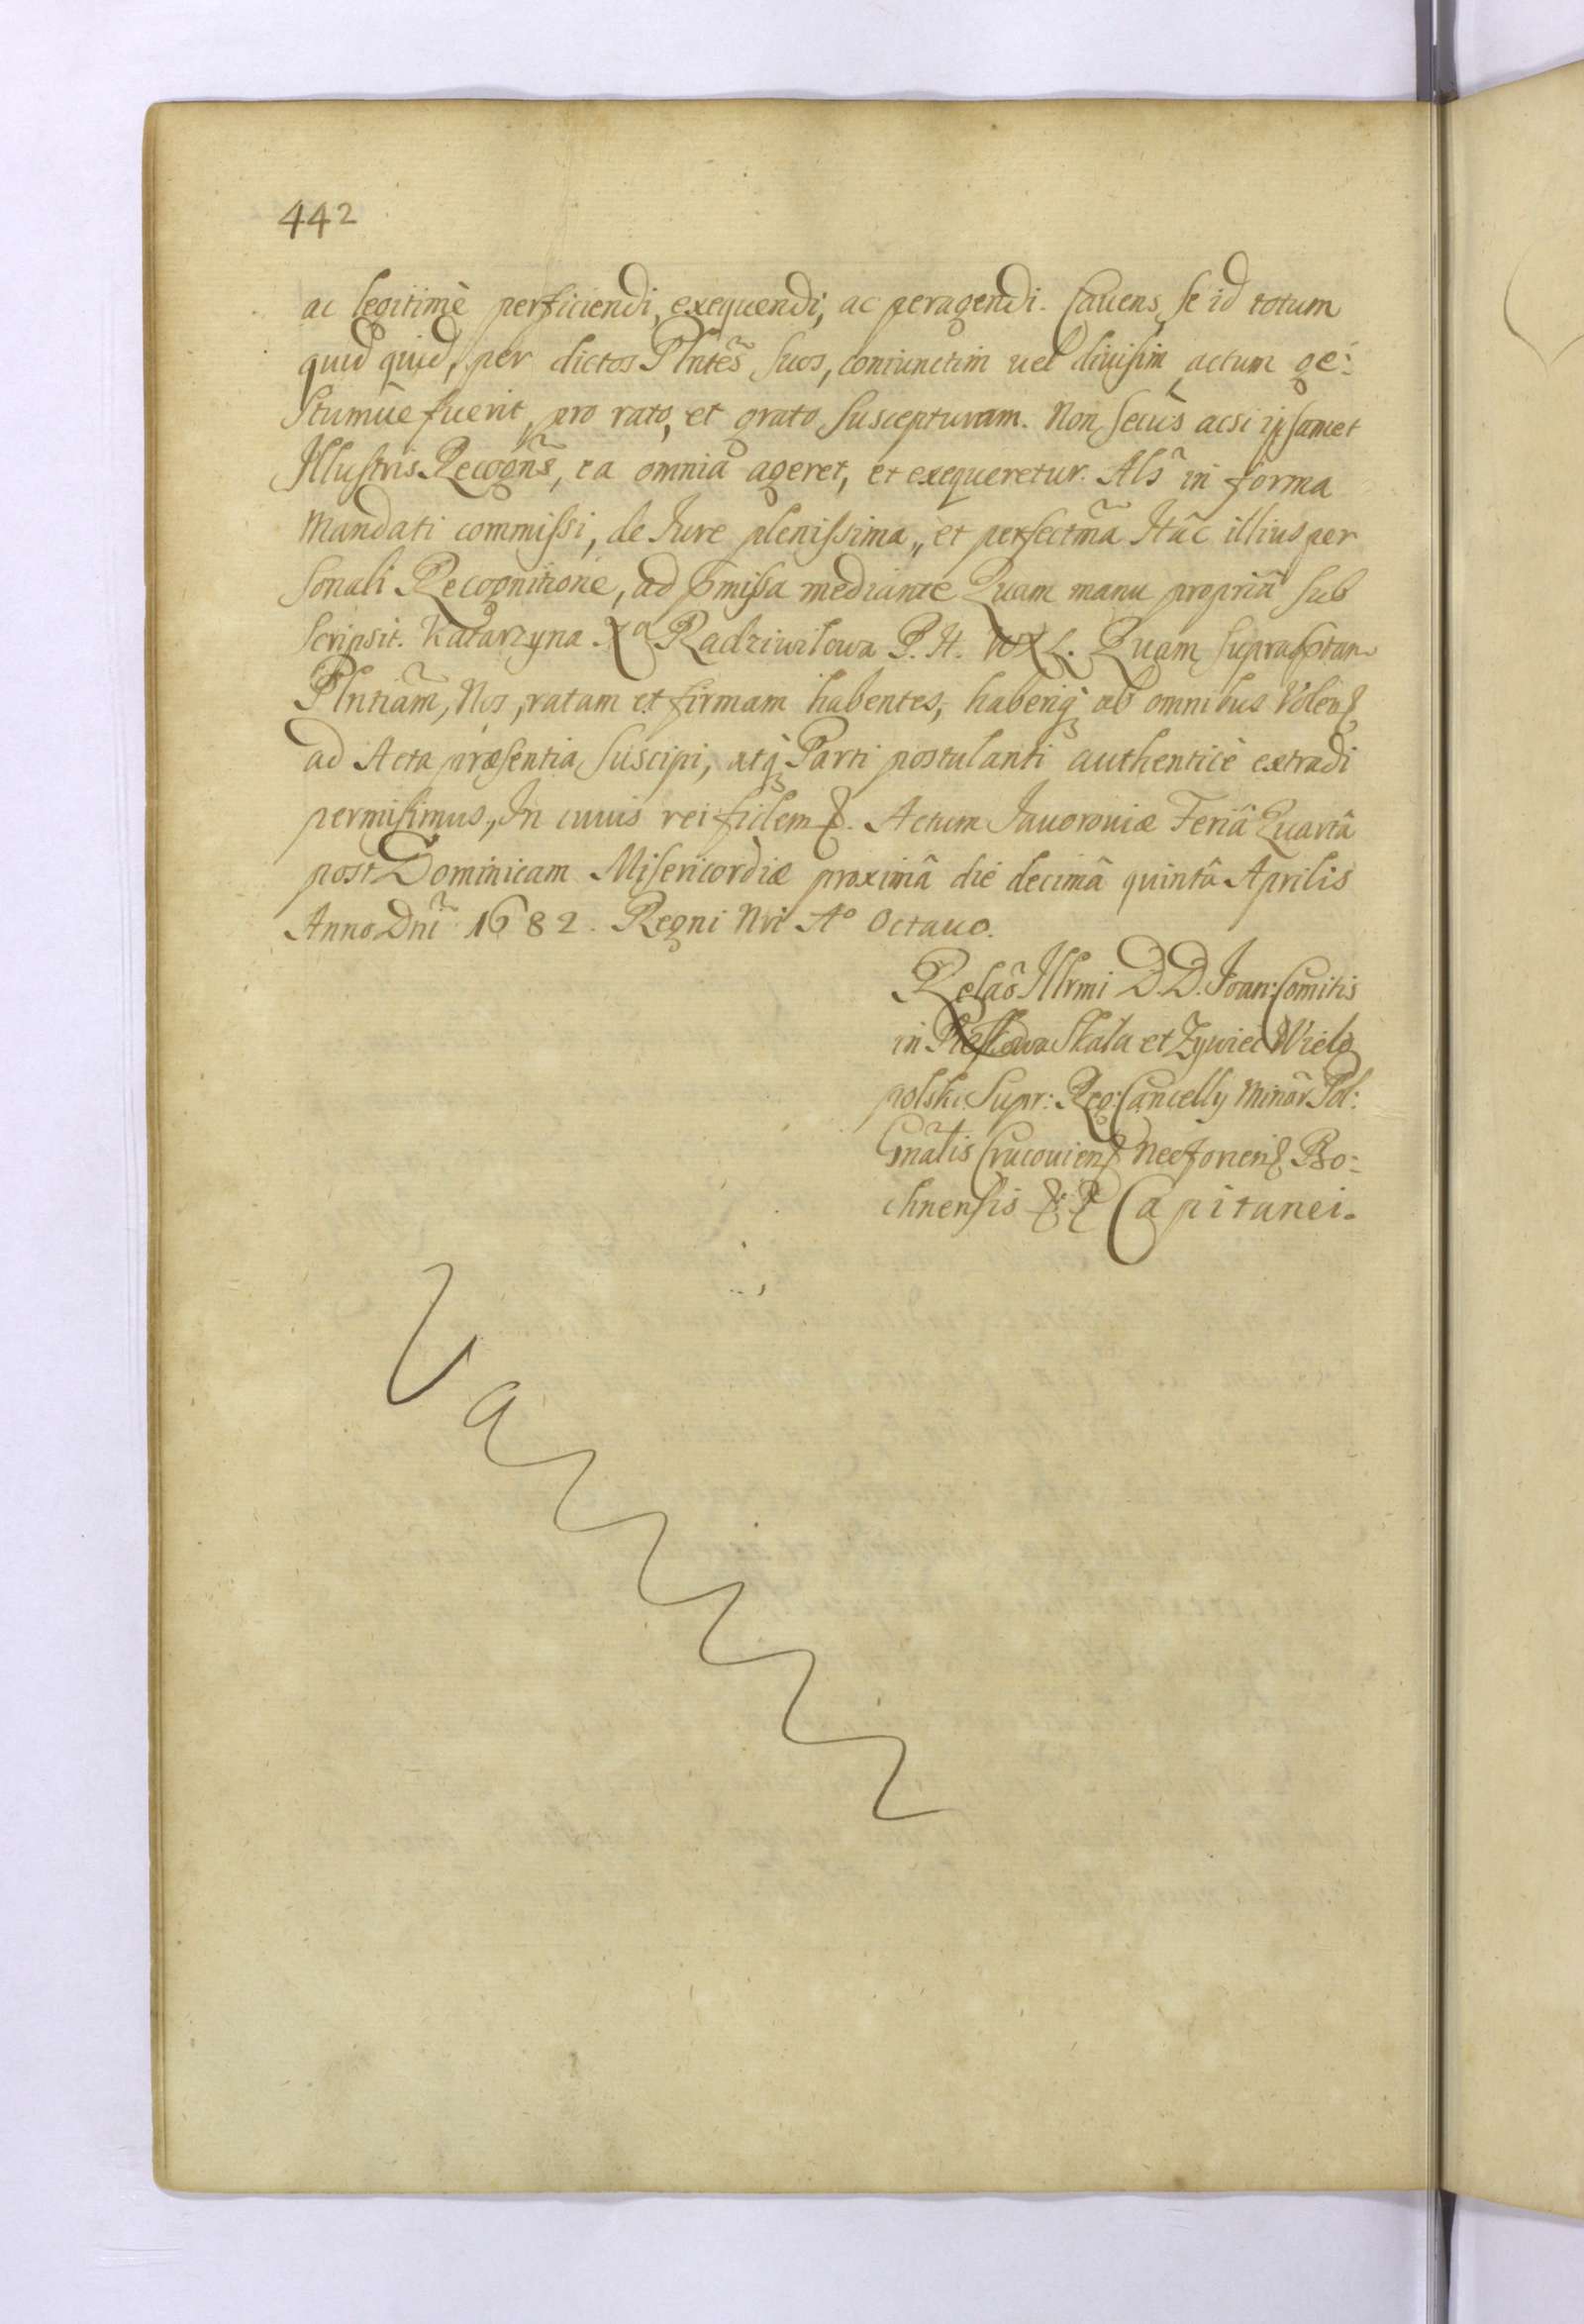 442
ac legitimè perficiendi, exequendi, ac peragendi. Cavens, se id totum
quid quid, per dictos Plñtes suos, coniunctim uel diuisim actum ge:
stumue fuerit, pro rato, et grato suscepturam. Non secùs acsi ipsamet
Illustris Recogñs, ea omnia ageret, et exequeretur. Als in forma
Mandati commissi, de Iure plenissima, et perfectma Hac illius per
sonali Recognitione, ad pmissa mediante Quam manu propriâ sub
scripsit. Katarzyna Xa Radziwilowa P. H. WXL. Quam supra
Plntiam, Nos, ratam et firmam habentes, haberiq ab omnibus Volen
ad Acta præsentia suscipi, atq Parti postulanti authenticè extradi
permisimus, In cuius rei fidem. Actum Iauoroviæ Feriâ Quartâ
post Dominicam Misericordiæ proximâ die decimâ quintâ Aprilis
Anno Dñi 1682. Regni Nri Ao Octauo.
Relaõ Illrmi D. D. Ioan: Comitis
in Pieskowa Skala et Zywiec Wielo
polski Supr: Reg: Cancelly Minor Pol:
Gnalis Cracouien Nec Bo:
chnensis Capitanei.